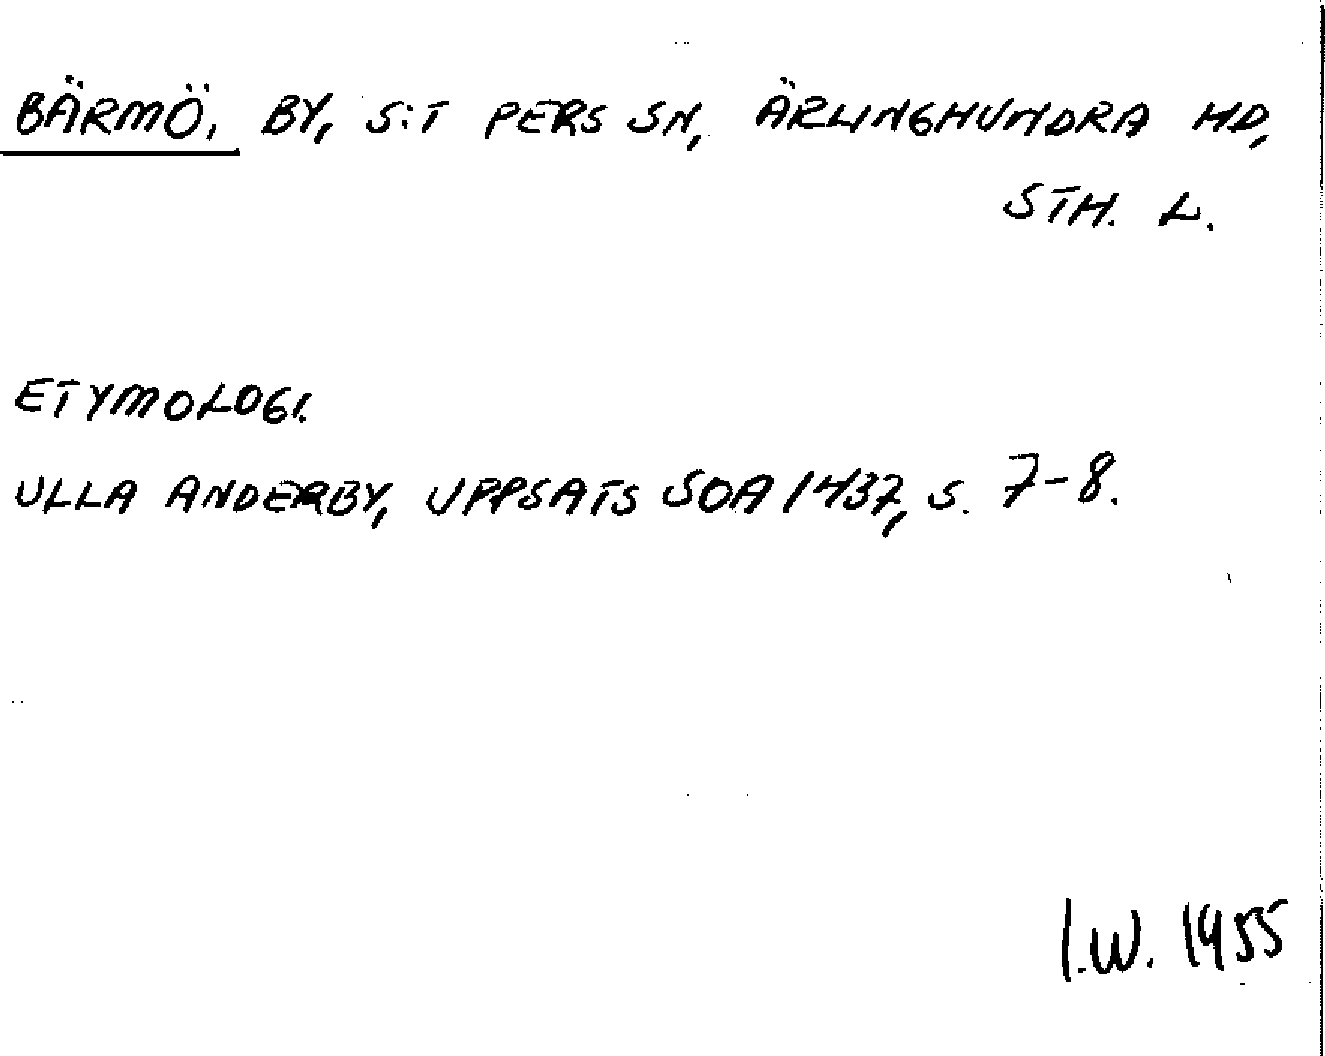 BÄRMÖ, BY, S:T PERS SN, ÄRLINGHUNDRA HD,
STH. L.
ETYMOLOGI.
ULLA ANDERBY, UPPSATS SOA 1437, S. 7-8.
I.W. 1955